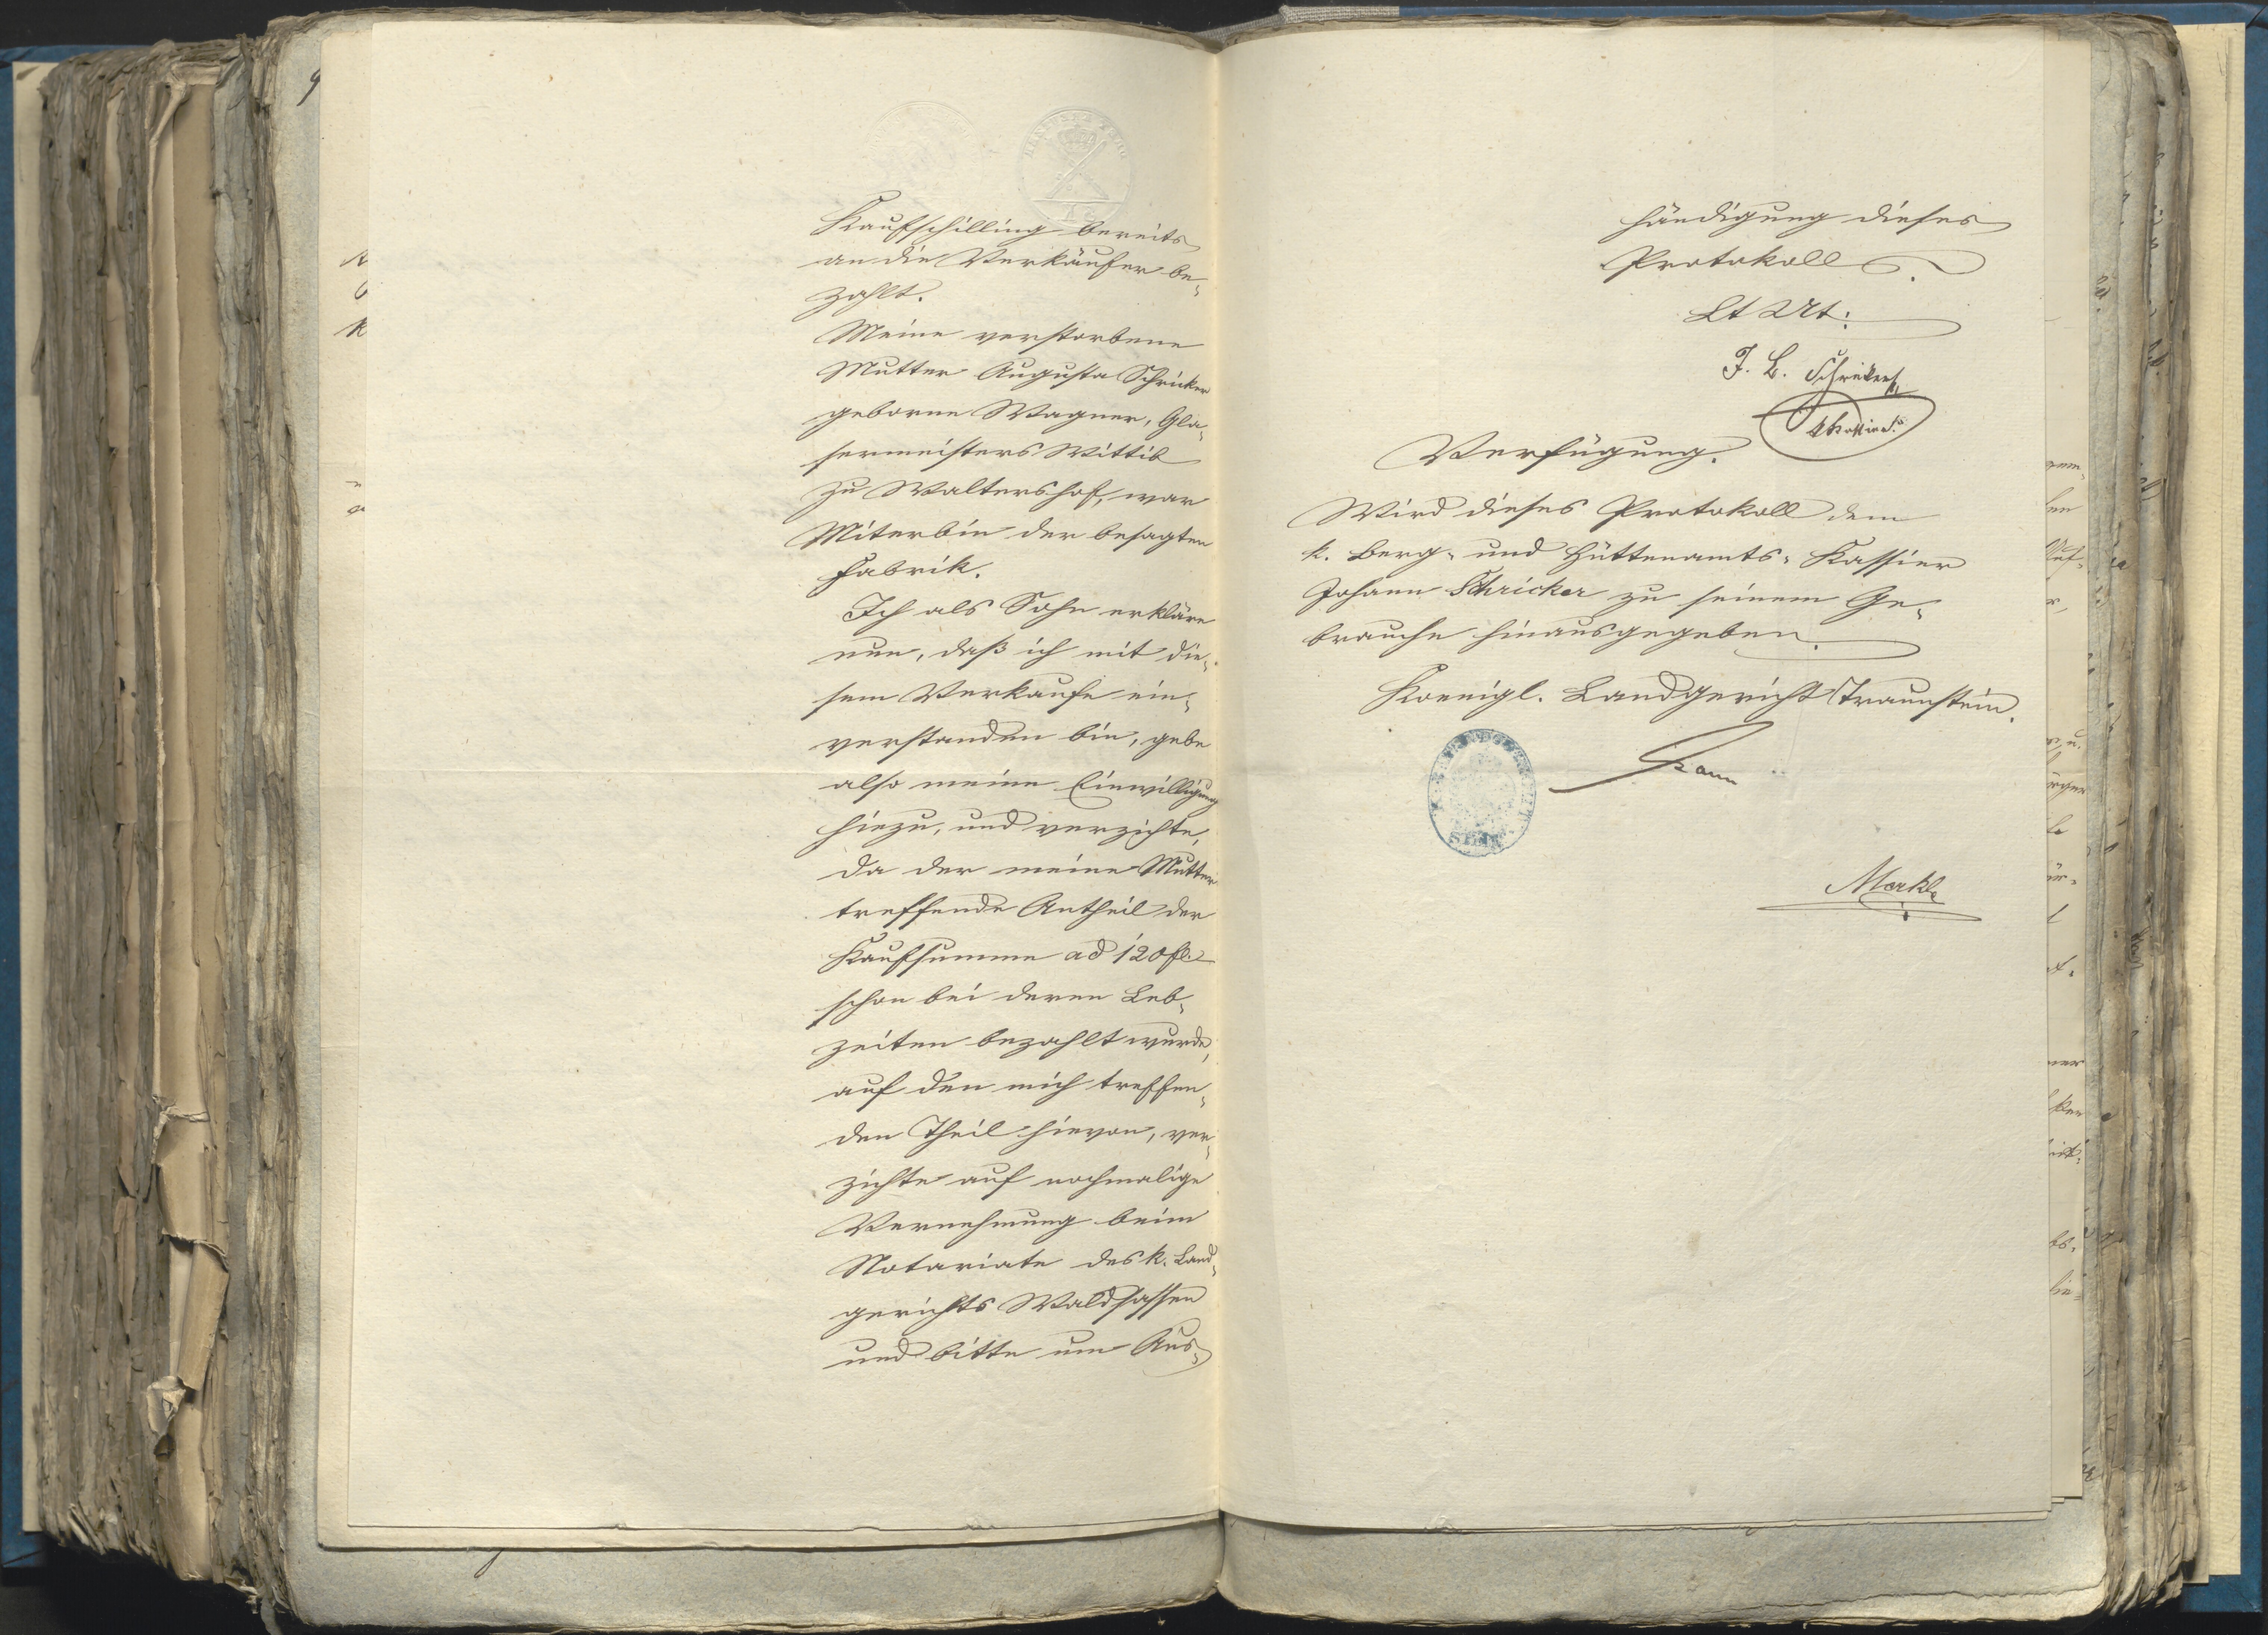 Kaufschilling bereits
an die Verkäufer be-
zahlt.
Meine verstorbene
Mutter Augusta Schricker
geborne Wagner, Gla-
sermeisters Wittib
zu Waltershof, war
Miterbin der besagten
Fabrik.
Ich als Sohn erkläre
nun, daß ich mit die-
sem Verkaufe ein-
verstanden bin, gebe
also meine Einwilligung
hiezu, und verzichte,
da der meine Mutter
treffende Antheil der
Kaufsumme ad 120 fl.
schon bei deren Leb-
zeiten bezahlt wurde,
auf den mich treffen-
den Theil hievon, ver-
zichte auf nochmalige
Vernehmung beim
Notariate des k. Land-
gerichts Waldsassen
und bitte um Aus-
händigung dieses
Protokolls.
J. B. Schricker
Verfügung.
Wird dieses Protokoll dem
k. Berg- und Hüttenamts-Kassier
Johann Schricker zu seinem Ge-
brauche hinausgegeben.
Koenigl. Landgericht Traunstein.
Merkle